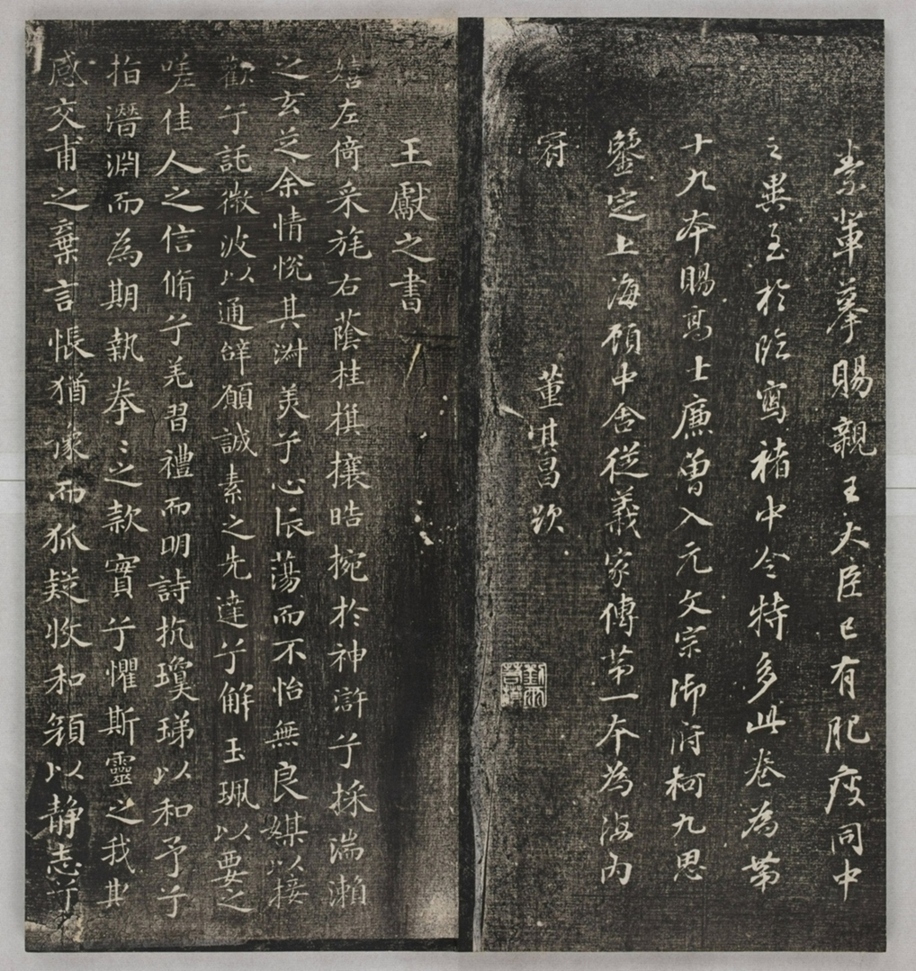 素輩摹賜親王大臣已有肥瘦同中
之異至於臨寫褚中令特多此卷為苐
十九本賜高士廉曾入元文宗御府柯九思
鑒定上海顧中舍從義家傳苐一本為海内
冠 董其昌跋
王獻之書
嬉左倚采旄右蔭桂棋攘皓捥於神滸兮採湍瀨
之玄芝余情悅其淑美兮心振蕩而不怡無良媒以接
歡兮託微波以通辭願誠素之先達兮解玉珮以要之
嗟佳人之信脩兮羌習禮而明詩抗瓊珶以和予兮
指潛淵而為期執拳〻之款實兮懼斯靈之我欺
感交甫之棄言悵猶豫而狐疑收和顏以静志兮